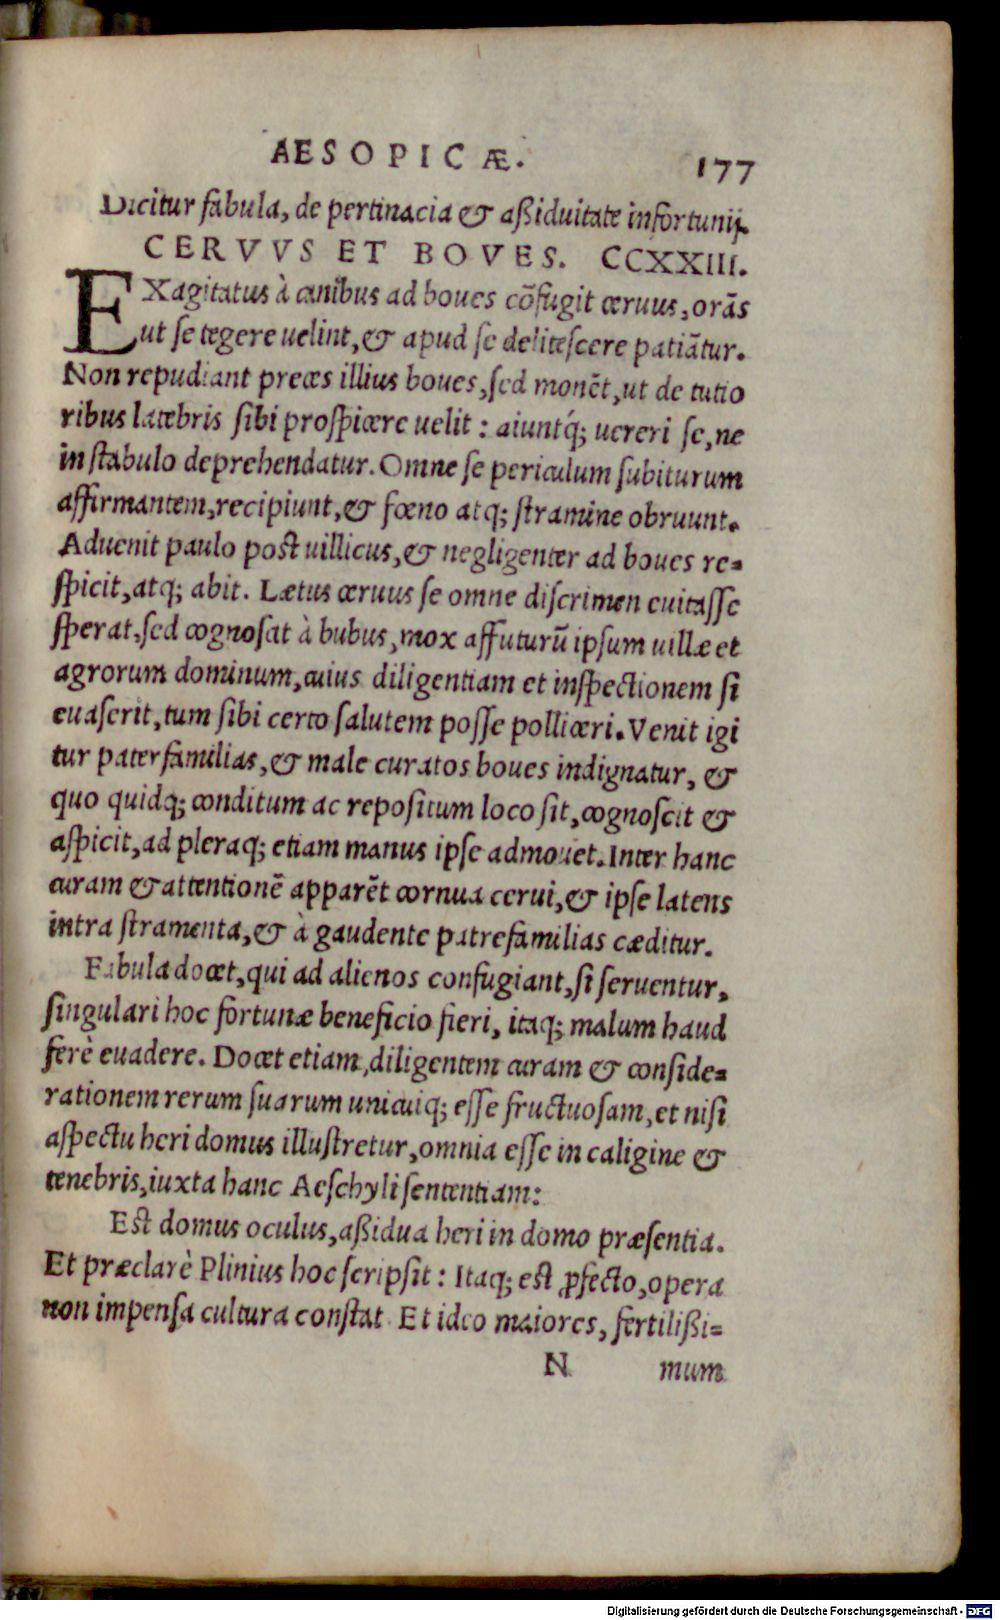 AESOPICÆ. 177
Dicitur fabula, de pertinacia & aßiduitate infortunij.
CERVVS ET BOVES. CCXXIII.
EXagitatus à canibus ad boues cõfugit ceruus, orãs
ut se tegere uelint, & apud se delitescere patiãtur.
Non repudiant preces illius boues, sed monẽt, ut de tutio
ribus latebris sibi prospicere uelit : aiuntq́; uereri se, ne
in stabulo deprehendatur. Omne se periculum subiturum
affirmantem, recipiunt, & fœno atq; stramine obruunt.
Aduenit paulo post uillicus, & negligenter ad boues re=
spicit, atq; abit. Lætus ceruus se omne discrimen euitasse
sperat, sed cognoscit à bubus, mox affuturũ ipsum uillæ et
agrorum dominum, cuius diligentiam et inspectionem si
euaserit, tum sibi certo salutem posse polliceri. Venit igi
tur paterfamilias, & male curatos boues indignatur, &
quo quidq; conditum ac repositum loco sit, cognoscit &
aspicit, ad pleraq; etiam manus ipse admouet. Inter hanc
curam & attentionẽ apparẽt cornua cerui, & ipse latens
intra stramenta, & à gaudente patrefamilias cæditur.
Fabula docet, qui ad alienos confugiant, si seruentur,
singulari hoc fortunæ beneficio fieri, itaq; malum haud
ferè euadere. Docet etiam, diligentem curam & conside=
rationem rerum suarum unicuiq; esse fructuosam, et nisi
aspectu heri domus illustretur, omnia esse in caligine &
tenebris, iuxta hanc Aeschyli sententiam:
Est domus oculus, aßidua heri in domo præsentia.
Et præclarè Plinius hoc scripsit : Itaq; est ꝓfecto, opera
non impensa cultura constat. Et ideo maiores, fertilißi=
N mum
Digitalisierung gefördert durch die Deutsche Forschungsgemeinschaft - DFG